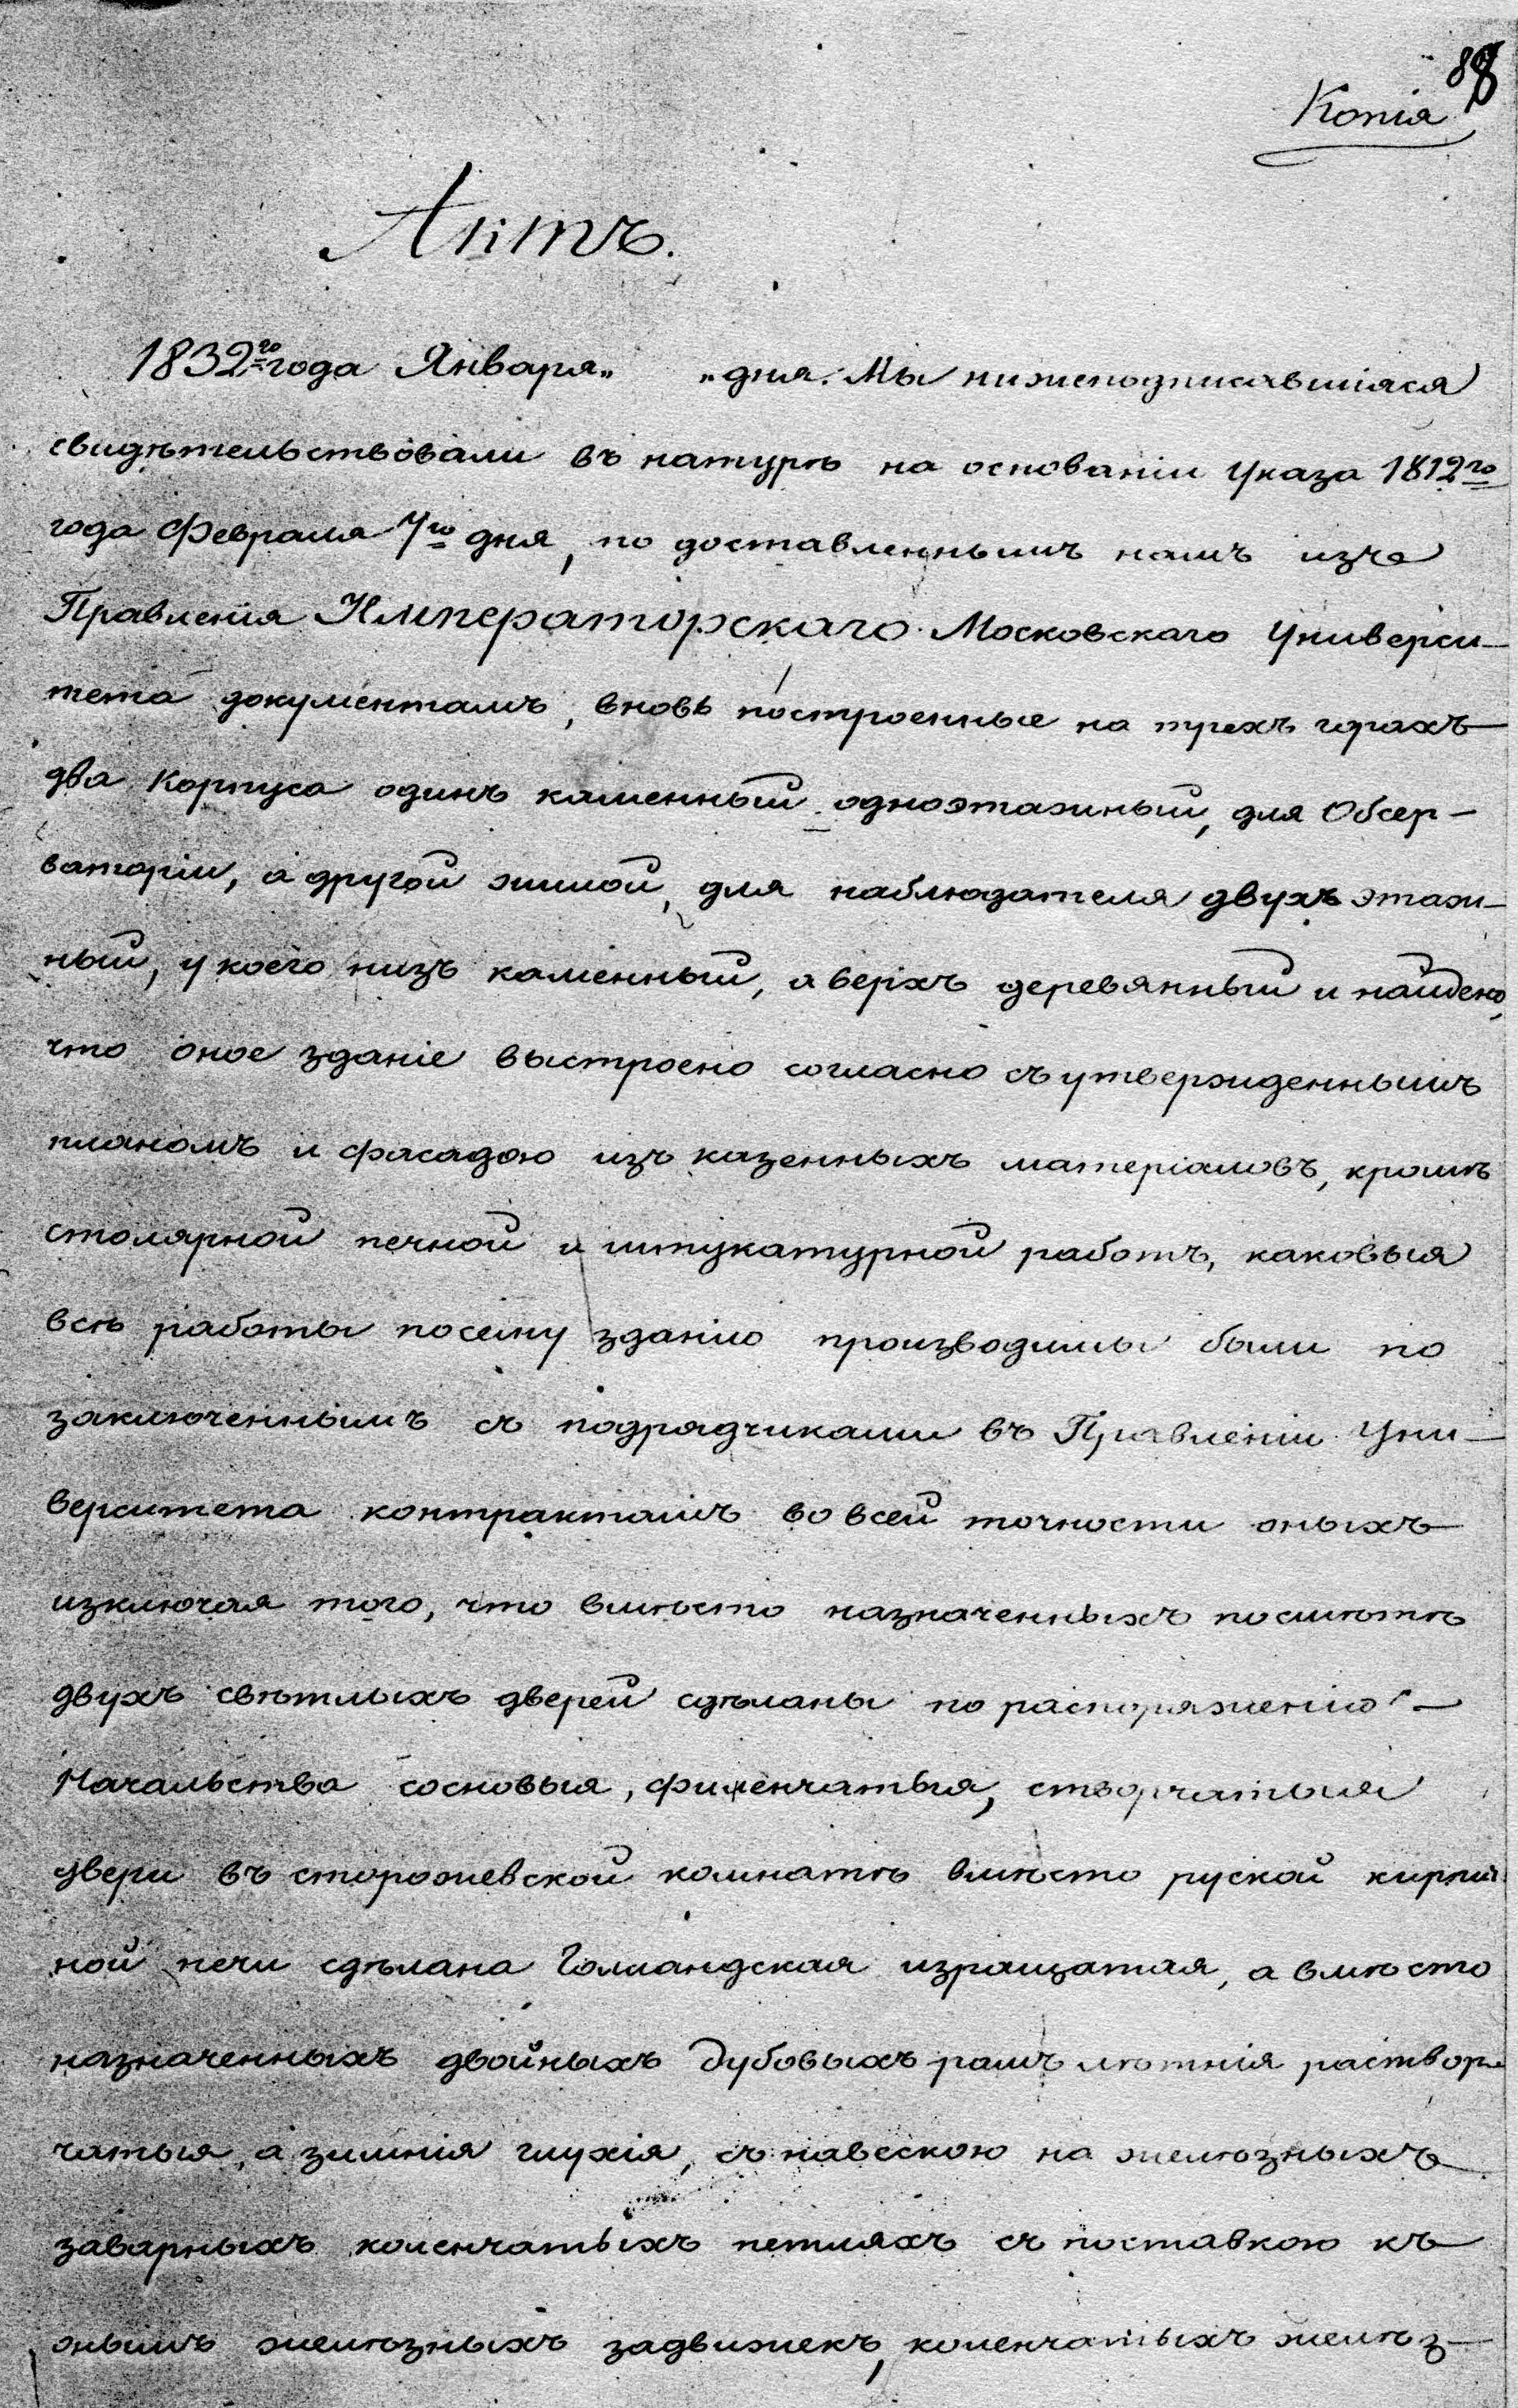 88
Копія
Актъ.
1832го года Января „ „ дня. Мы нижеподписавшіяся
свидѣтельствовали въ натурѣ на основаніи Указа 1812го
года Февраля 7го дня, по доставленнымъ намъ изъ
Правленія Императорскаго Московскаго Универси-
тета документамъ, вновь построенные на трехъ горахъ
два Корпуса одинъ каменный одноэтажный, для Обсер-
ваторіи, а другой жилой, для наблюдателя двухъ этаж-
ный, у коего низъ каменный, а верхъ деревянный и найдено,
что оное зданіе выстроено согласно съ утвержденнымъ
планомъ и фасадою изъ казенныхъ матеріаловъ, кромѣ
столярной печной и штукатурной работъ, каковыя
всѣ работы посему зданію производимы были по
заключеннымъ съ подрядчиками въ Правленіи Уни-
верситета контрактамъ во всей точности оныхъ
изключая того, что вмѣсто назначенныхъ посмѣтѣ
двухъ свѣтлыхъ дверей сдѣланы по распоряженію -
Начальства сосновыя, филенчатыя, створчатыя
двери въ сторожевской комнатѣ вмѣсто руской кирпич
ной печи сдѣлана Голландская изращатая, а вмѣсто
назначенныхъ двойныхъ дубовыхъ рамъ лѣтнія раствор-
чатыя, а зимнія глухія, съ навескою на желѣзныхъ
заварныхъ коленчатыхъ петляхъ съ поставкою къ
онымъ желѣзныхъ задвижекъ, коленчатыхъ желѣз-